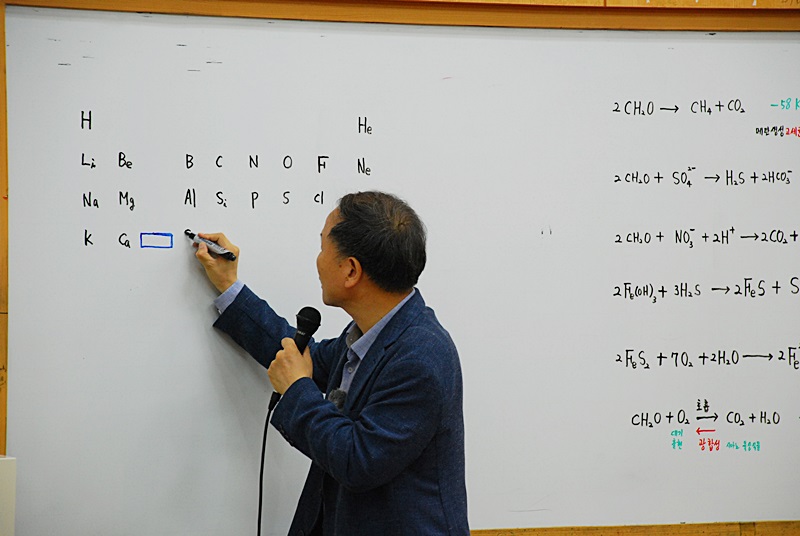 H He
Li Be B C N O F Ne
Na Mg Al Si P S Cl
K Ca
2CH₂O → CH₄ + CO₂ -58 K
메탄생성
2CH₂O + SO₄²⁻ → H₂S + 2HCO₃⁻
2CH₂O + NO₃⁻ + 2H⁺ → 2CO₂ +
2Fe(OH)₃ + 3H₂S → 2FeS + S
2FeS₂ + 7O₂ + 2H₂O → 2Fe
호흡
CH₂O + O₂ ⇄ CO₂ + H₂O
대기 ←
출현 광합성